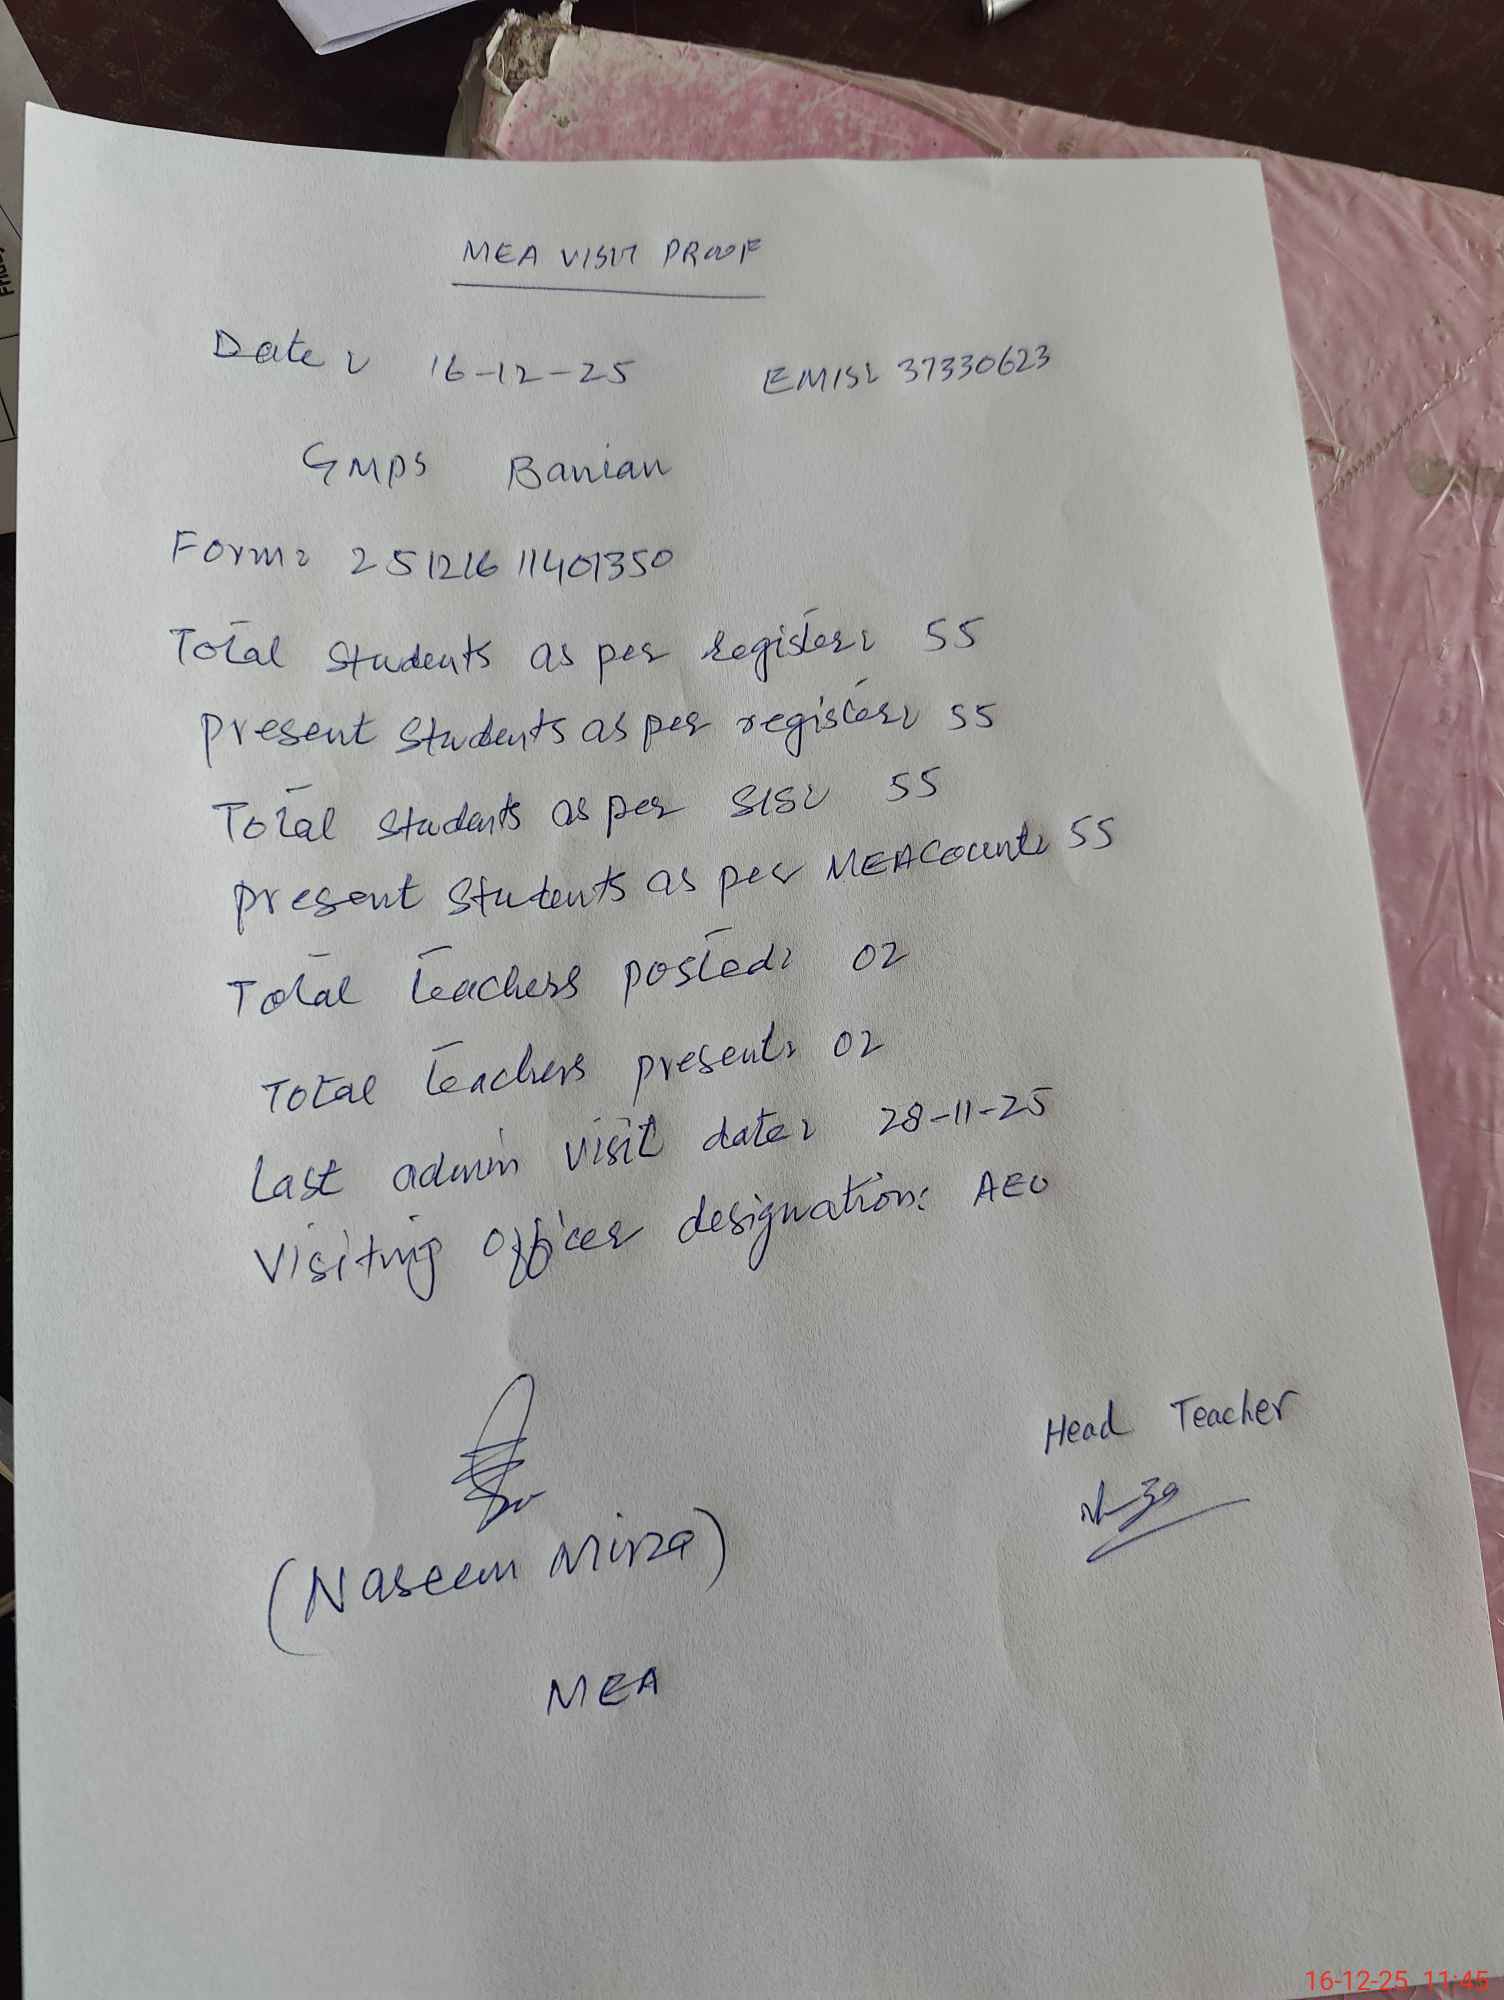 MEA VISIT PROOF
Date: 16-12-25 EMIS: 37330623
GMPS Banian
Form: 25121611401350
Total students as per register: 55
present students as per register: 55
Total students as per SIS: 55
present students as per MEA Count: 55
Total teachers posted: 02
Total teachers present: 02
Last admin visit date: 28-11-25
Visiting officer designation: AEO
Head Teacher
(Naseem Mirza)
MEA
16-12-25, 11:45